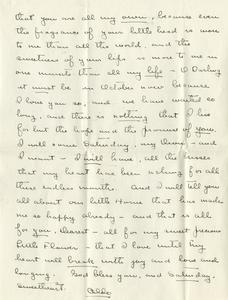 that you are all my own, because even
the fragrance of your little head is more
to me than all this world, and the
sweetness of your lips is more to me in
one minute than all my life - O Darling
it must be in October now because
I love you so, and we have waited so
long, and there is nothing that I live
for but the hope and the promise of you.
I will come Saturday, my Own - and
I want - I will have, all the kisses
that my heart has been aching for all
these endless months. And I will tell you
all about our little Home that has made
me so happy already - and that is all
for you, dearest - all for my sweet precious
little Flower - that I love until my
heart will break with joy and love and
longing. God bless you, and Saturday,
Sweetheart.